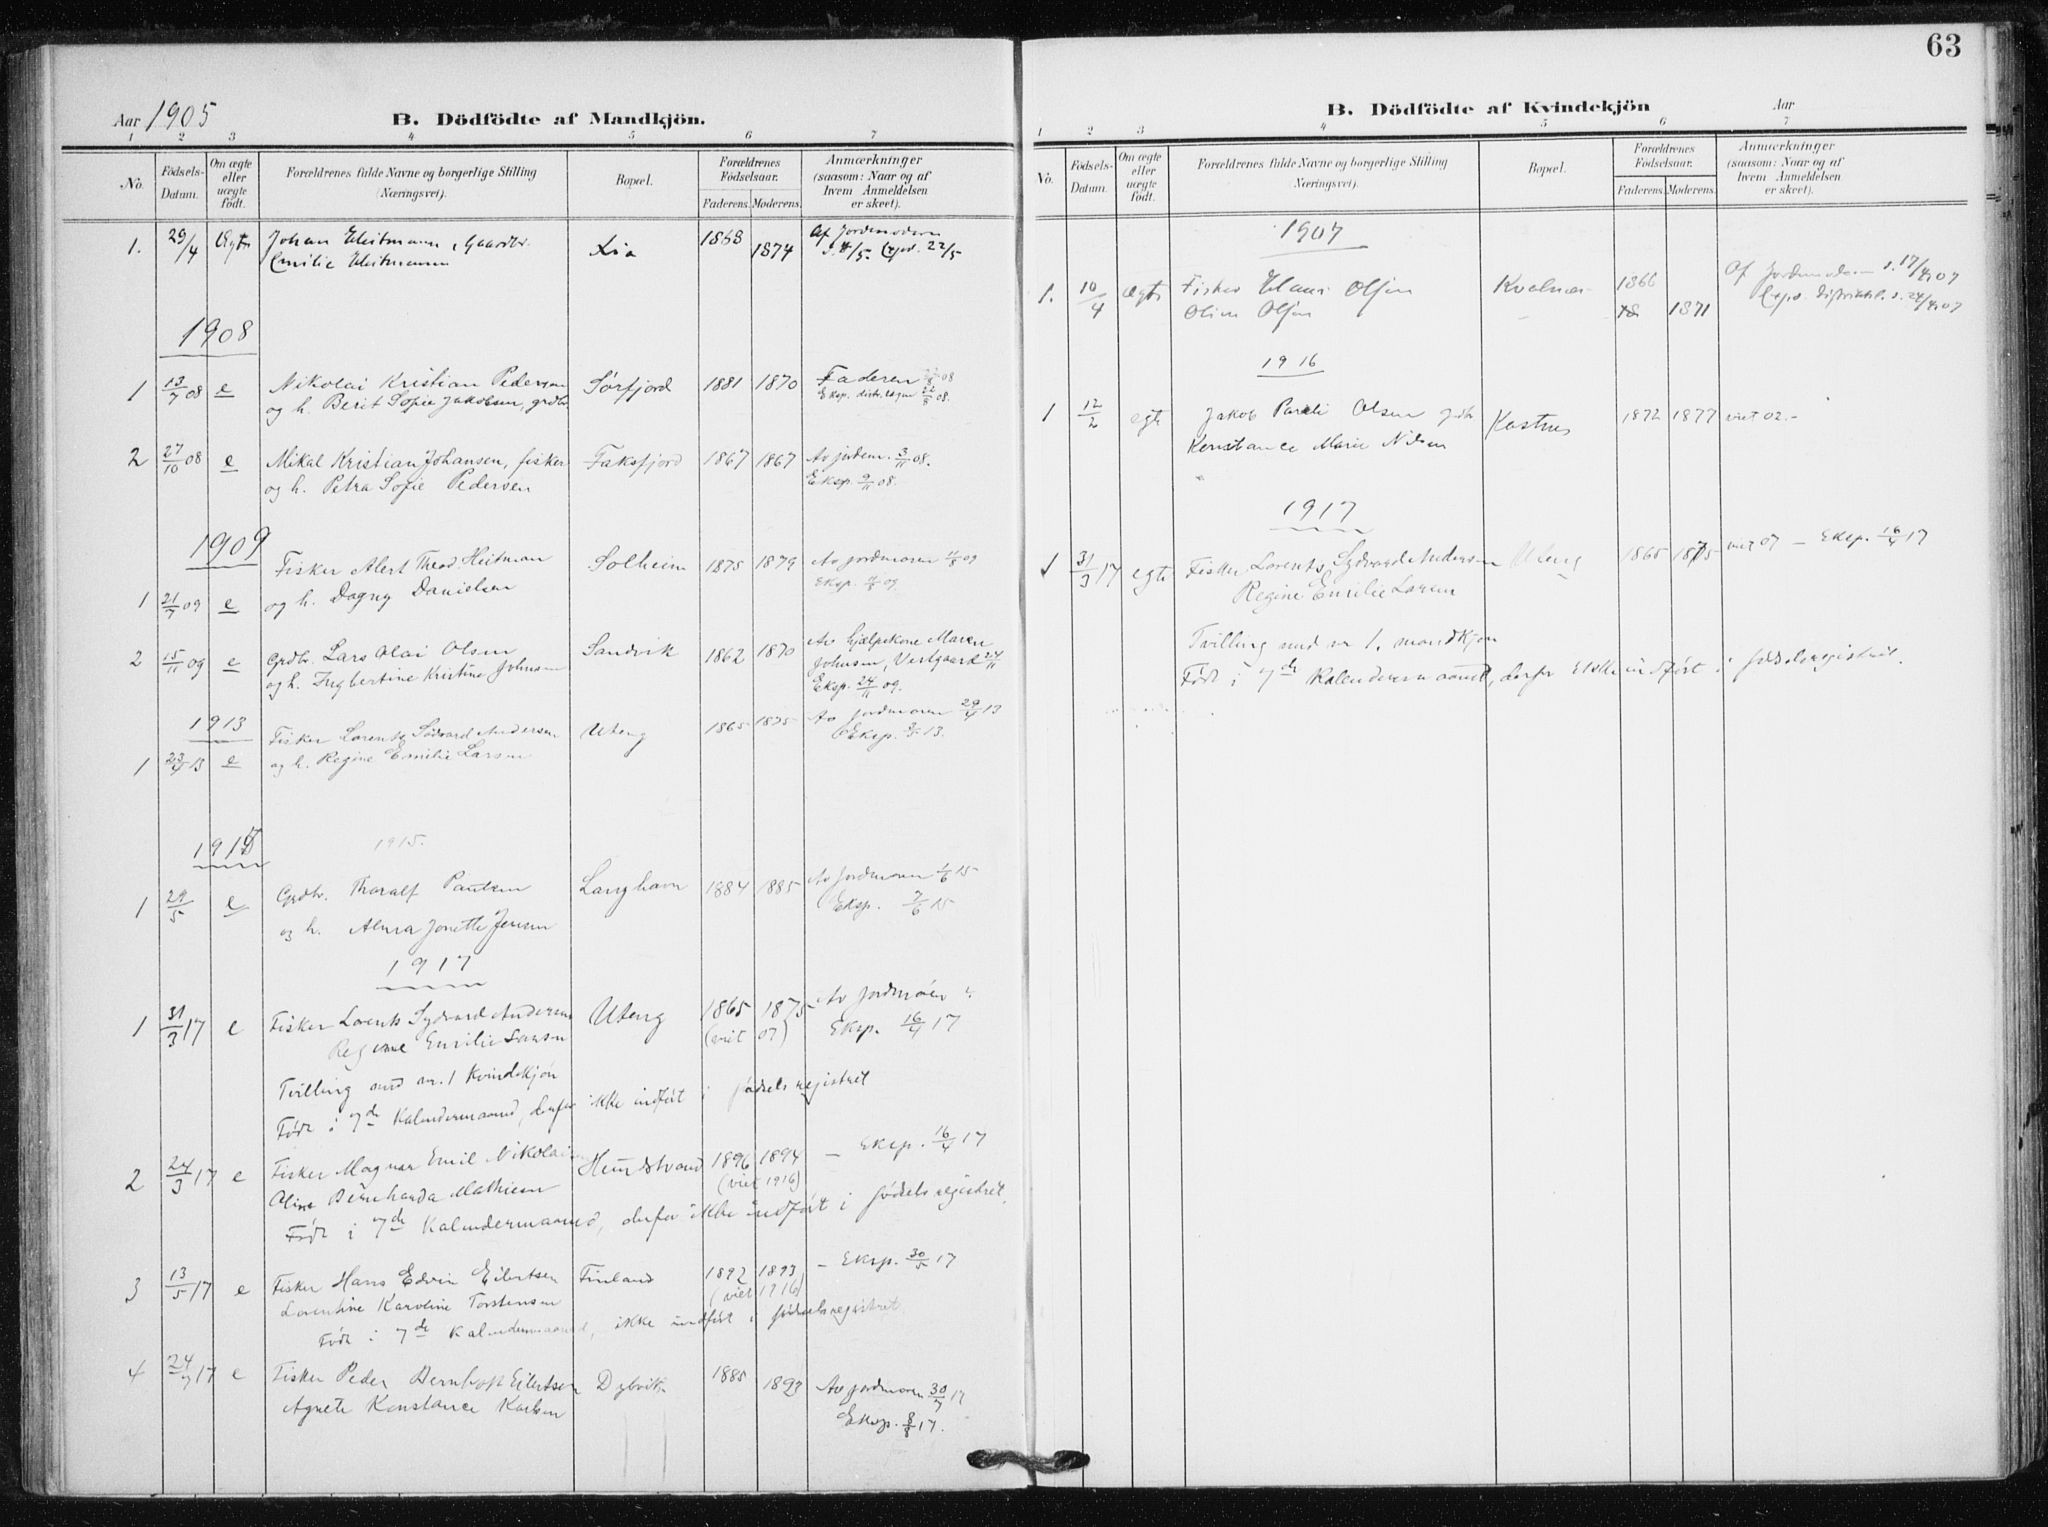 63
Aar 1905 B. Dödfödte af Mandkjön.
1 2 3 4 5 6 7
No. Födsels-Datum. Om ægte eller uægte födt. Forældrenes fulde Navne og borgerlige Stilling (Næringsvei). Bopæl. Forældrenes Födselsaar. Faderens. Moderens. Anmærkninger (saasom: Naar og af hvem Anmeldelsen er skeet).
1. 29/4 Ægte Johan Heitmann, Gaardbr. Lia 1868 1874 Af Jordmoderen
Emilie Heitmann Exp. 22/5
1908
1 13/7 08 e Nikolai Kristian Pedersen Sørfjord 1881 1870 Faderen 08
og h. Berit Sofie Jakobsen, grdbr. Eksp. 22/8 08.
2 27/10 08 e Mikal Kristian Johansen, fisker Faksfjord 1867 1867 Av jordem. 3/11 08.
og h. Petra Sofie Pedersen Eksp. 9/11 08.
1909
Fisker Alert Theod. Heitman Solheim 1875 1879 Av jordmoren 09
1 21/7 09 e og h. Dagny Danielsen Eksp. 09
2 15/11 09 e Grdbr. Lars Olai Olsen Sandvik 1862 1870 Av hjælpekone Maren
og h. Ingbertine Kristine Johnsen Johnsen, Vestgaard 24/11
Eksp. 24/11 09.
1913
Fisker Lorents Sidvard Andersen Uteng 1865 1875 Av jordmoren 29/4 13
1 23/4 13 e og h. Regine Emilie Larsen Eksp. 13.
1915 1915.
1 29/5 e Grdbr. Thoralf Paulsen Langhavn 1884 1885 Av Jordmoren 1/6 15
og h. Alma Jonette Jensen Eksp. 7/6 15
1917
1 31/3 17 e Fisker Lorents Sydvard Andersen Uteng 1865 1875 Av Jordmoren
Regine Emilie Larsen (viet 07) Eksp. 16/4 17
Tvilling med nr. 1 Kvindekjøn
Født i 7de Kalendermaaned, derfor ikke indført i fødselsregistret
2 24/3 17 e Fisker Magnar Emil Nikolaisen Hundstrand 1896 1894 – Eksp. 16/4 17
Oline Bernharda Mathisen (viet 1916)
Født i 7de Kalendermaaned, derfor ikke indført i fødselsregistret.
3 13/5 17 e Fisker Hans Edvin Eilertsen Finland 1892 1893 – Eksp. 30/5 17
Lorentine Karoline Torstensen (viet 1916)
Født i 7de Kalendermaaned, ikke indført i fødselsregistret.
4 24/7 17 e Fisker Peder Bernhof Eilertsen Dybvik 1885 1893 Av jordmoren 30/7 17
Agnete Konstance Karlsen Eksp. 8/8 17.
B. Dödfödte af Kvindekjön Aar
1 2 3 4 5 6 7
No. Födsels-Datum. Om ægte eller uægte födt. Forældrenes fulde Navne og borgerlige Stilling (Næringsvei). Bopæl. Forældrenes Födselsaar. Faderens. Moderens. Anmærkninger (saasom: Naar og af hvem Anmeldelsen er skeet).
1907
1. 10/4 Ægte Fisker Hans Olsen Kvalnes 1866 1871 Af Jordmoderen 17/4 07
Oline Olsen Exp. Distriktsl. 24/4 07
1916
1 12/2 egte Jakob Pareli Olsen grdbr Kastnes 1872 1877 viet 02. –
Konstance Marie Nilsen
1917
1 31/3 17 egte Fisker Lorents Sydvard Andersen Uteng 1865 1875 viet 07 – Eksp. 16/4 17
Regine Emilie Larsen
Tvilling med nr 1. mandkjøn
Født i 7de Kalendermaaned, derfor ikke indført i fødselsregistret.